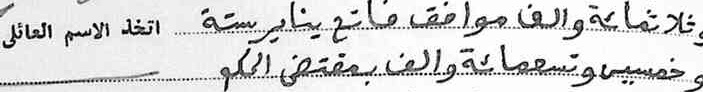 وثلاثمائة والف موافق فاتح يناير ستة اتخذ الاسم العائلي
وخمسين وتسعمائة والف بمقتضى الحكم